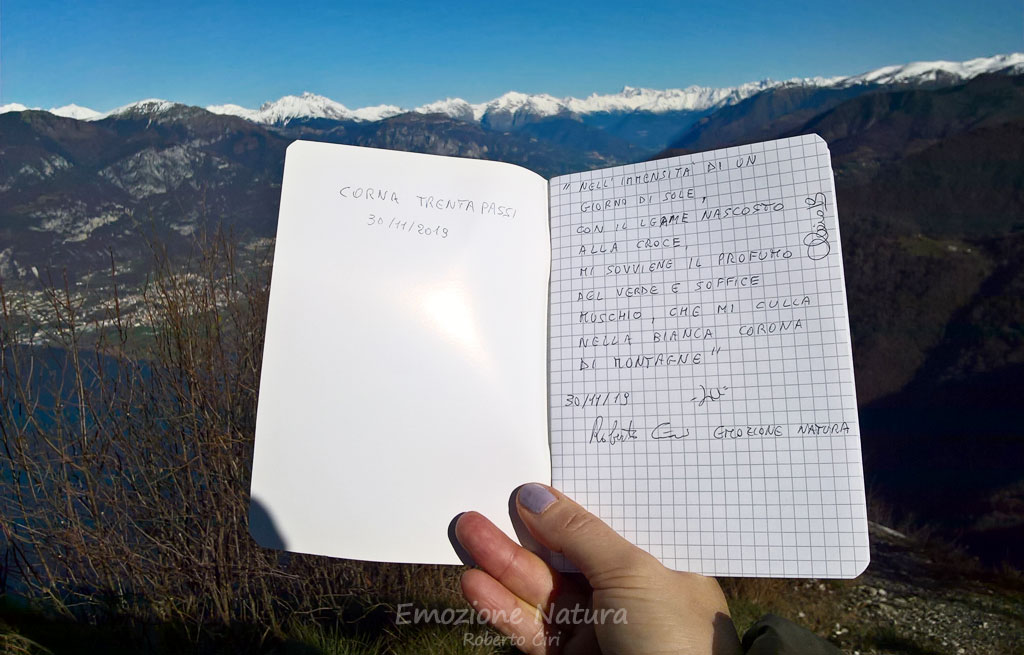 CORNA TRENTAPASSI
30/11/2019
" NELL'IMMENSITÀ DI UN
GIORNO DI SOLE,
CON IL LGAME NASCOSTO
ALLA CROCE,
MI SOVVIENE IL PROFUMO
DEL VERDE E SOFFICE
MUSCHIO, CHE MI CULLA
NELLA BIANCA CORONA
DI MONTAGNE "
30/11/19
Roberto Ciri EMOZIONE NATURA
Emozione Natura
Roberto Ciri